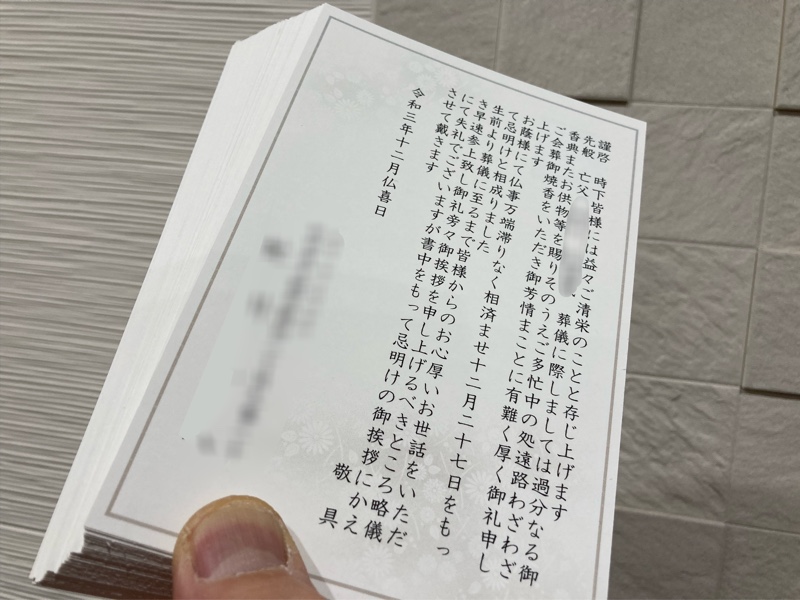 謹啓 時下皆様には益々ご清栄のことと存じ上げます
先般 亡父 葬儀に際しましては過分なる御
香典またお供物等を賜りそのうえご多忙中の処遠路わざわざ
ご会葬御焼香をいただき御芳情まことに有難く厚く御礼申し
上げます
お蔭様にて仏事万端滞りなく相済ませ十二月二十七日をもっ
て忌明けと相成りました
生前より葬儀に至るまで皆様からのお心厚いお世話をいただ
き早速参上致し御礼旁々御挨拶を申し上げるべきところ略儀
にて失礼でございますが書中をもって忌明けの御挨拶にかえ
させて戴きます
敬具
令和三年十二月仏喜日